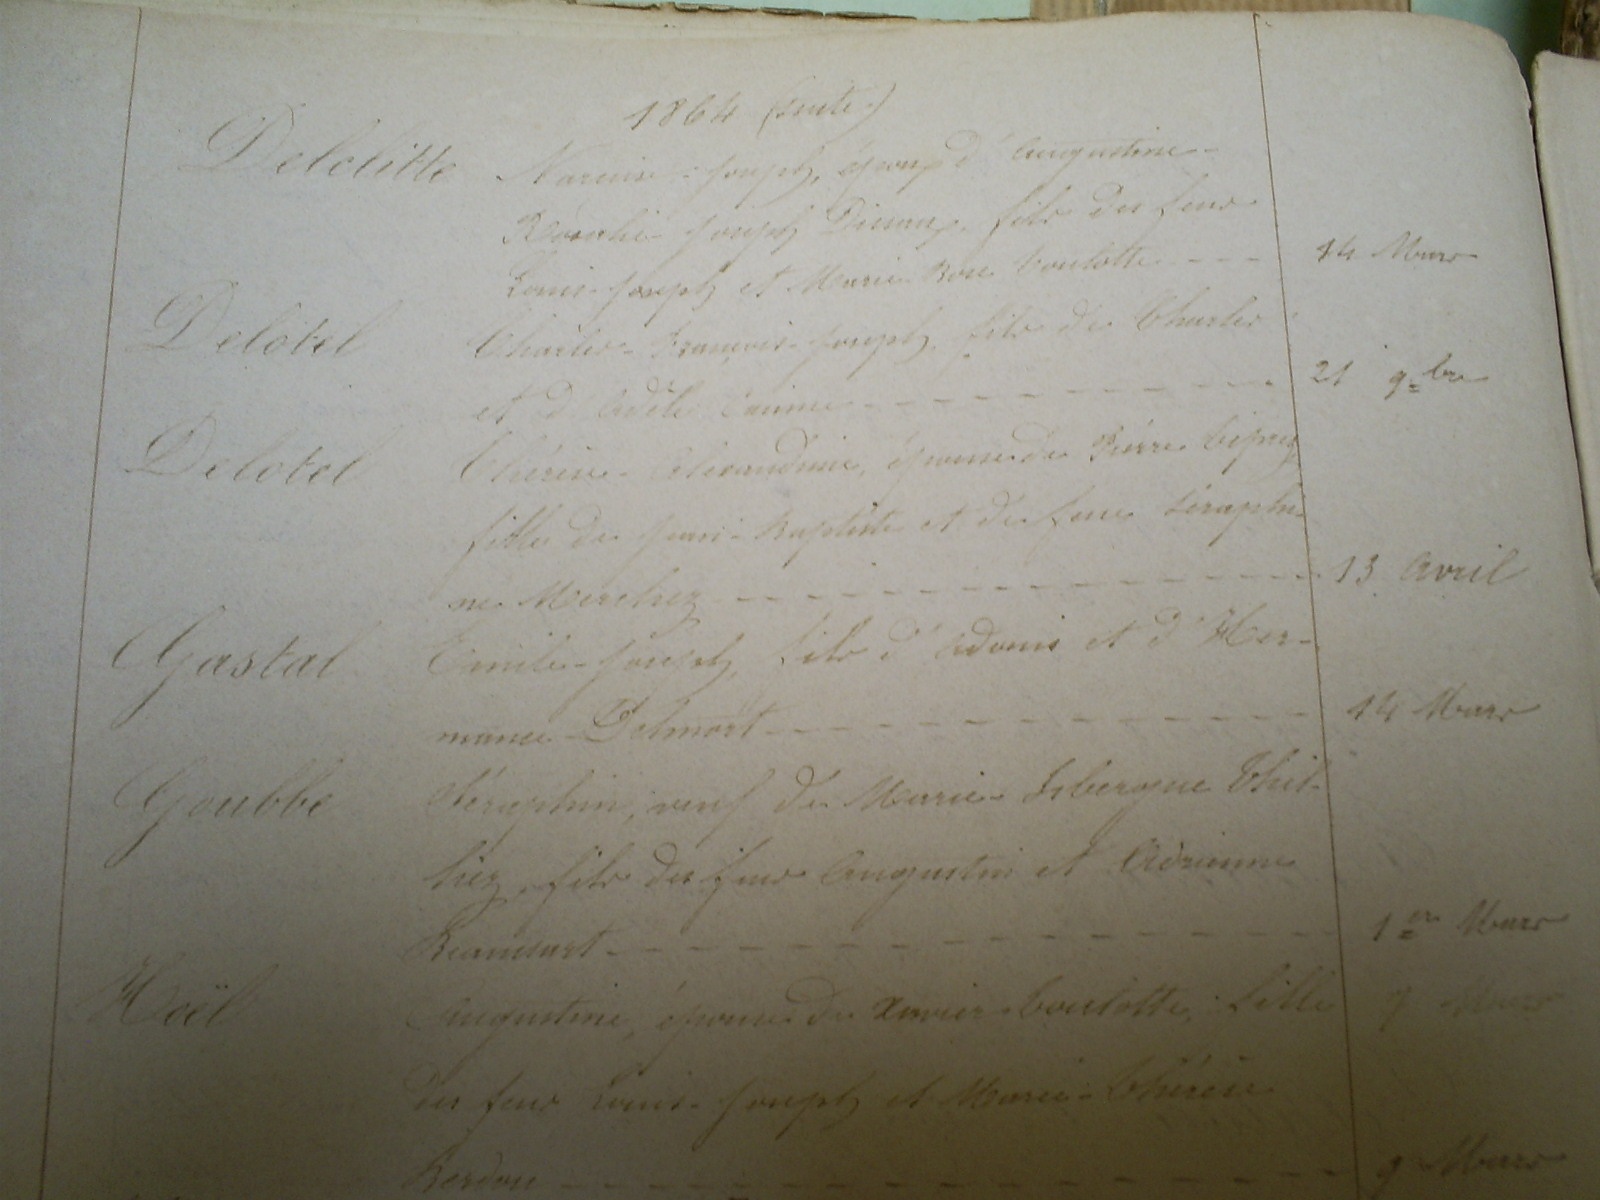 1864 (suite.)
Delclitte Narcisse-Joseph, époux d'Augustine-
Rosalie-Joseph Dissaux, fils des feus
Louis-Joseph et Marie Rose Coutotte - - - 14 Mars
Delôtel Charles-François-Joseph, fils de Charles
et d'Adèle - - - 21 9=bre
Delotel Thérèse-Alexandrine, épouse de Pierre
fille de Jean-Baptiste et de feue Séraphi-
ne Merchez - - - 13 Avril
Gastal Emile-Joseph, fils d'Adonis et d'Her-
mance Delmört - - - 14 Mars
Goubbe Séraphin, veuf de Marie-Isbergue Thil-
liez, fils des feus Augustin et Adrienne
Beaussart - - - 1er Mars
Hoël Augustine, épouse de Xavier Coutotte, fille 9 Mars
des feus Louis-Joseph et Marie-Thérèse
Berdou - - - 9 Mars